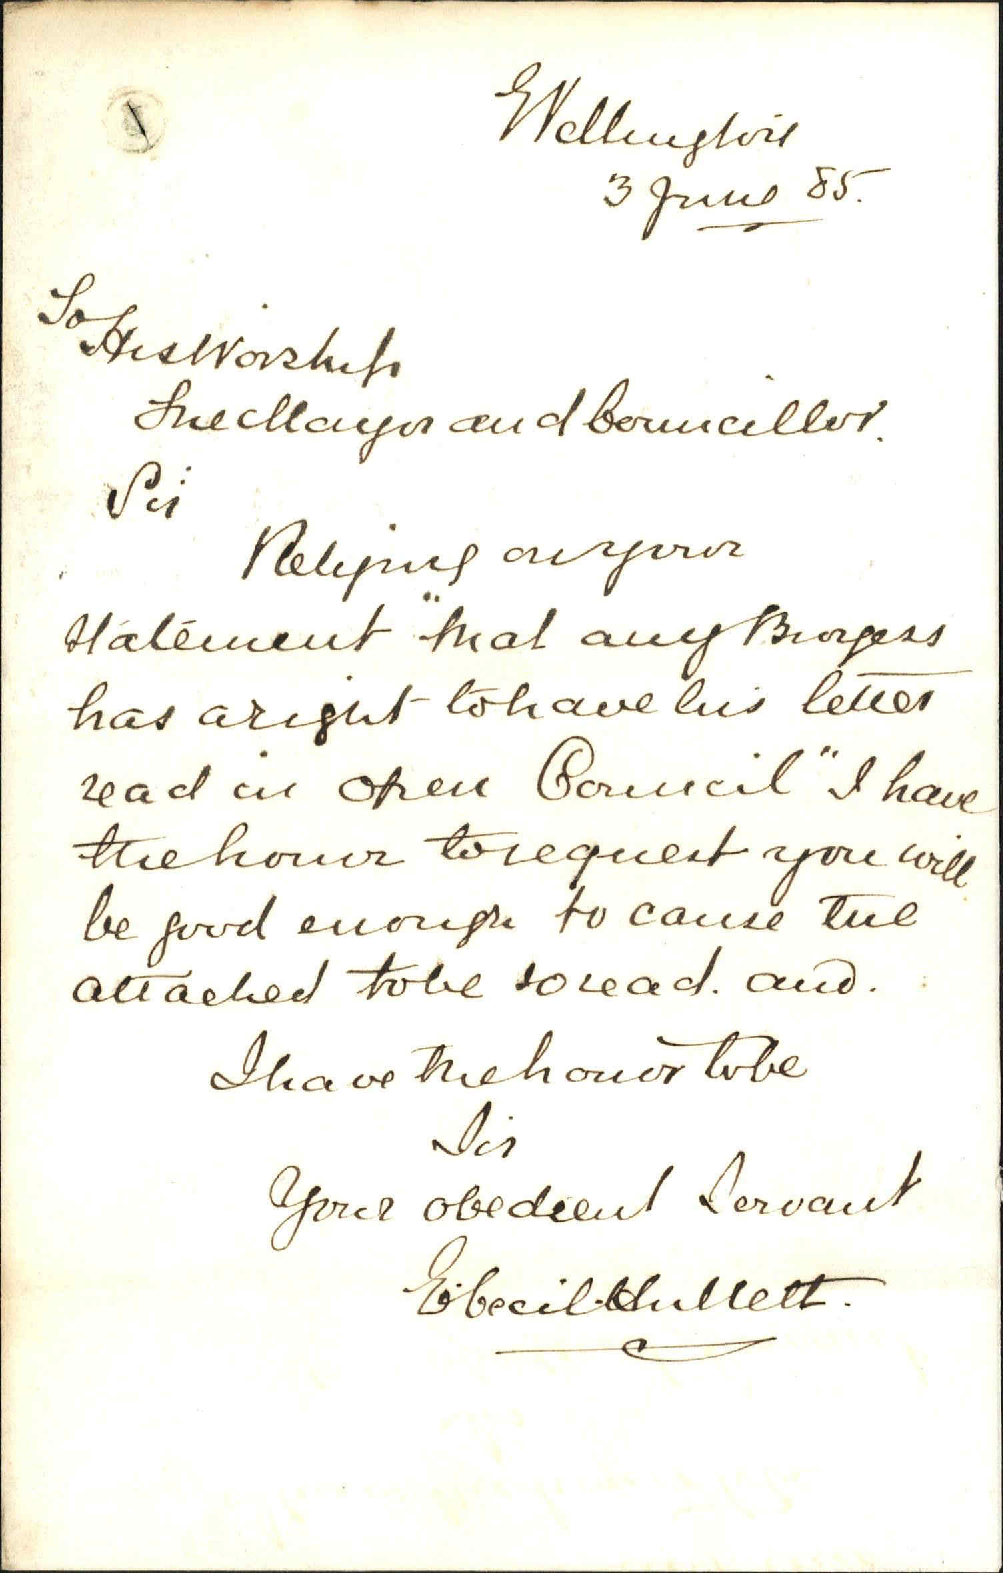 Wellington
3 June 85.
To
His Worship
The Mayor and Councillors.
Sir
Relying on your
statement "that any Burgess
has a right to have his letter
read in open Council" I have
the honor to request you will
be good enough to cause the
attached to be so read. and.
I have the honor to be
Sir
Your obedient Servant
E. Cecil Hullett.